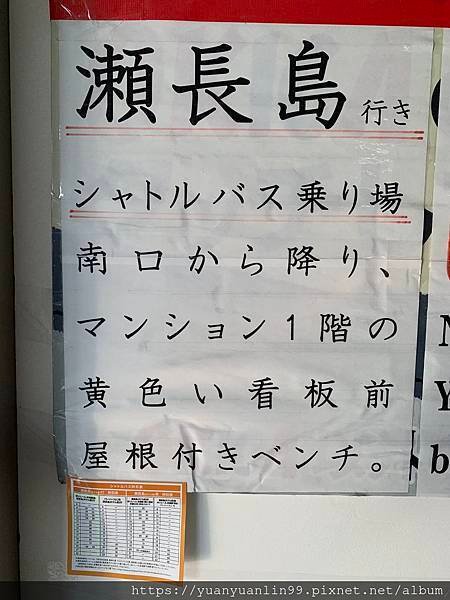 瀬長島行き
シャトルバス乗り場
南口から降り、
マンション1階の
黄色い看板前
屋根付きベンチ。
N
Y
b
https://yuanyuanlin99.pixnet.net/album